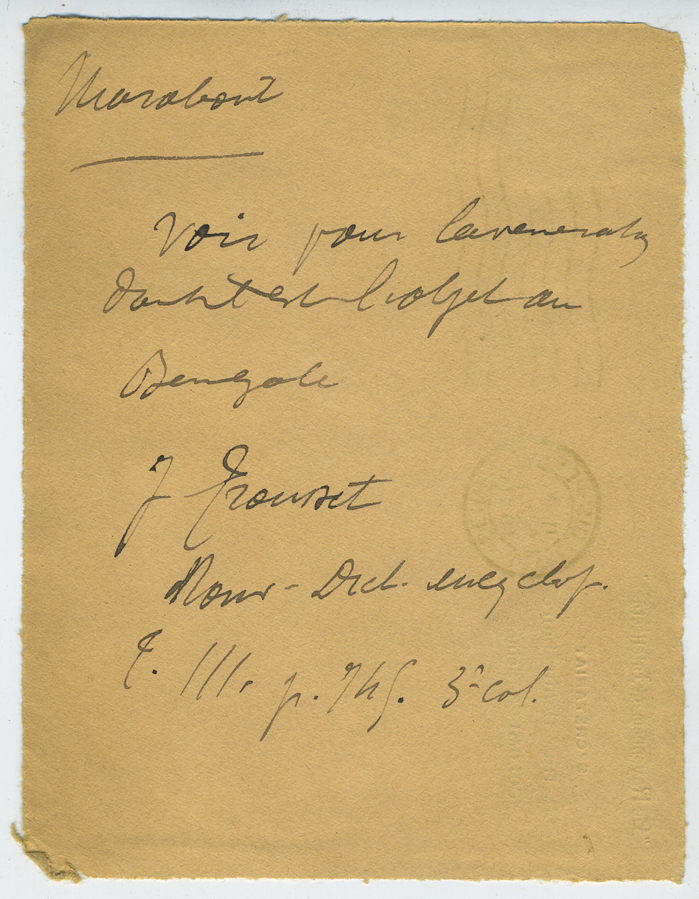 Marabout
Voir pour la vénération
dont il est l'objet au
Bengale
J Trousset
Nouv- Dict. encyclop.
T. III. p. 745. 3e col.